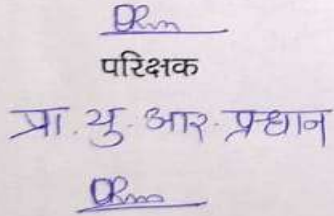 परिक्षक
प्रा. यु. आर. प्रधान